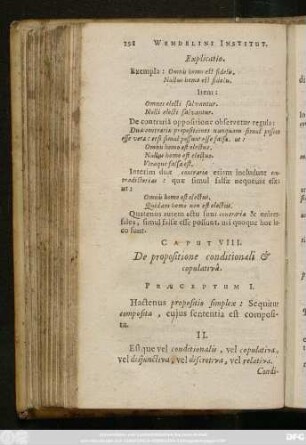 WENDELINI INSTITUT.
Explicatio.
Exempla: Omnis homo est fidelis,
Nullus homo est fidelis.
Item:
Omnes electi salvantur.
Nulli electi salvantur.
De contraria oppositione observetur regula:
Duæ contrariæ propositiones nunquam simul possunt
esse veræ: etsi simul possunt esse falsæ. ut:
Omnis homo est electus.
Nullus homo est electus.
Utraque falsa est.
Interim duæ contrariæ etiam includunt con-
tradictorias: quæ simul falsæ nequeunt esse:
ut:
Omnis homo est electus.
Quidam homo non est electus.
Quatenus autem actu sunt contrariæ & univer-
sales, simul falsæ esse possunt, uti quoque hoc lo-
co sunt.
CAPUT VIII.
De propositione conditionali &
copulativâ.
PRÆCEPTUM I.
Hactenus propositio simplex: Sequitur
composita, cujus sententia est composi-
ta.
II.
Estque vel conditionalis, vel copulativa,
vel disjunctiva, vel discretiva, vel relativa.
Condi-